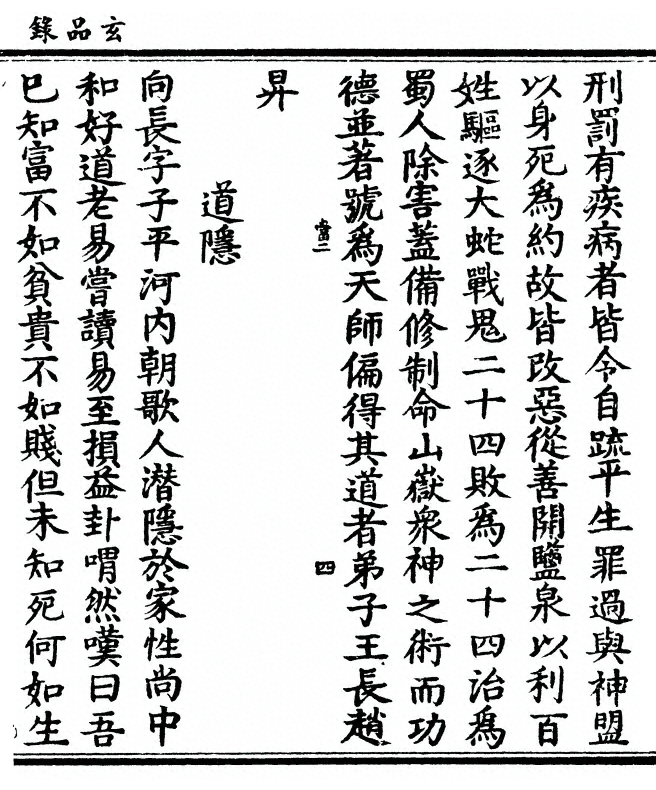 玄品錄
刑罰有疾病者皆令自疏平生罪過與神盟
以身死爲約故皆改惡從善開鹽泉以利百
姓驅逐大蛇戰鬼二十四敗爲二十四治爲
蜀人除害蓋備修制命山嶽衆神之術而功
德並著號爲天師偏得其道者弟子王長趙
當二
四
昇
道隱
向長字子平河内朝歌人潛隱於家性尚中
和好道老易嘗讀易至損益卦喟然嘆曰吾
已知富不如貧貴不如賤但未知死何如生